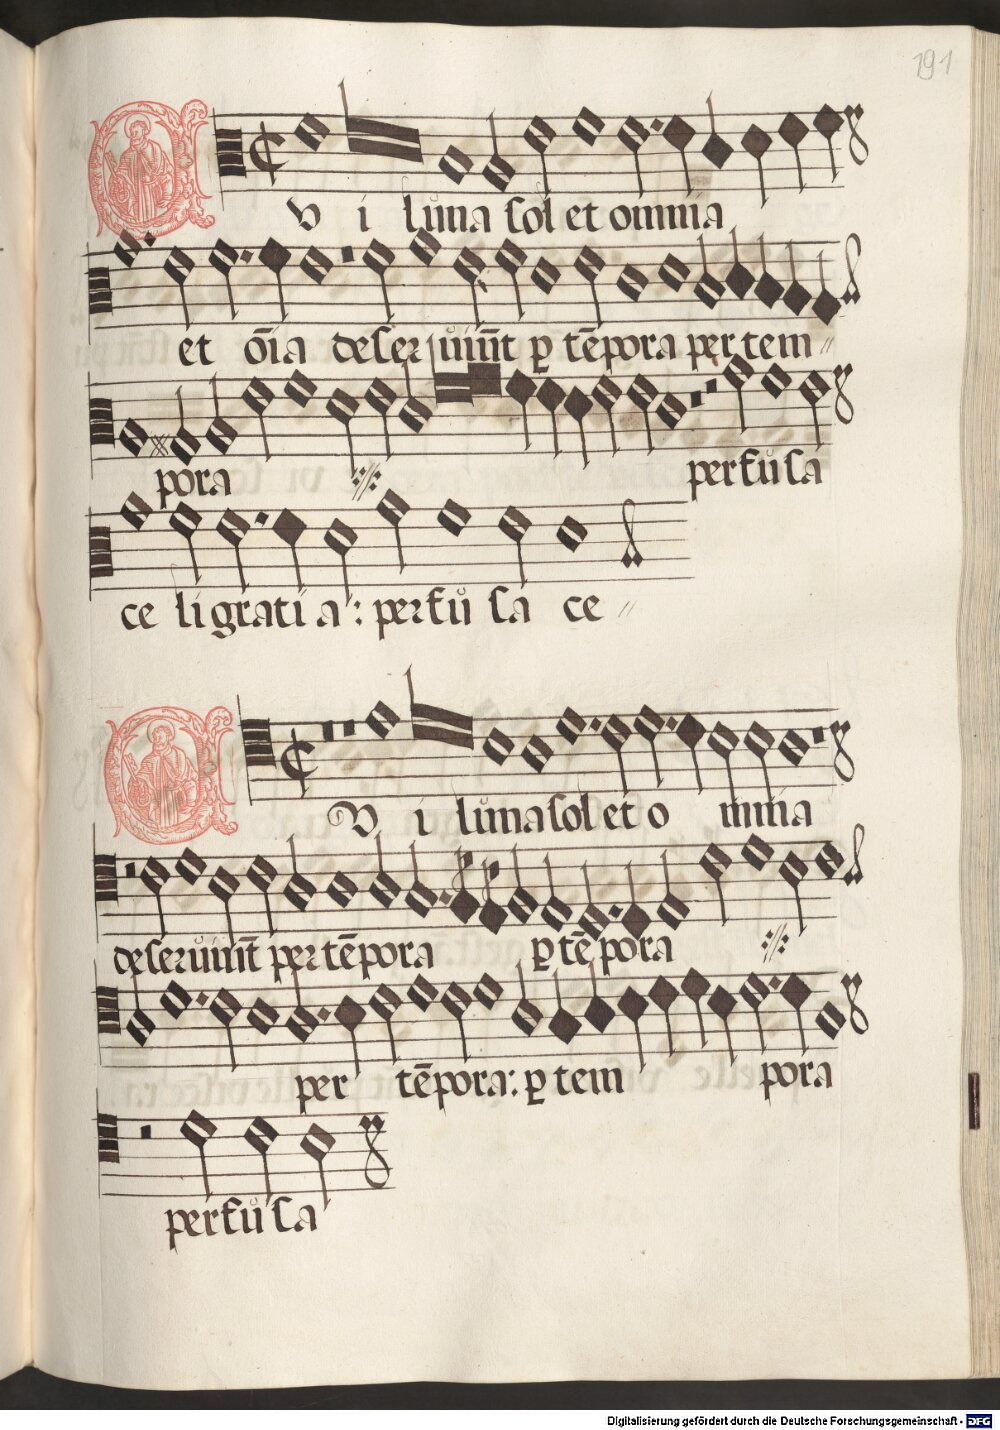 191
V i lůna sol et omnia
et o̅ia deseruiu̅t ꝑ te̅pora per tem〃
pora ://: perfůsa
celi gratia: perfů sa ce〃
V i lůna sol et o mnia
deseruiu̅t per te̅pora ꝑ te̅ pora ://:
per te̅pora: ꝑ tem pora
perfůsa
Digitalisierung gefördert durch die Deutsche Forschungsgemeinschaft - DFG